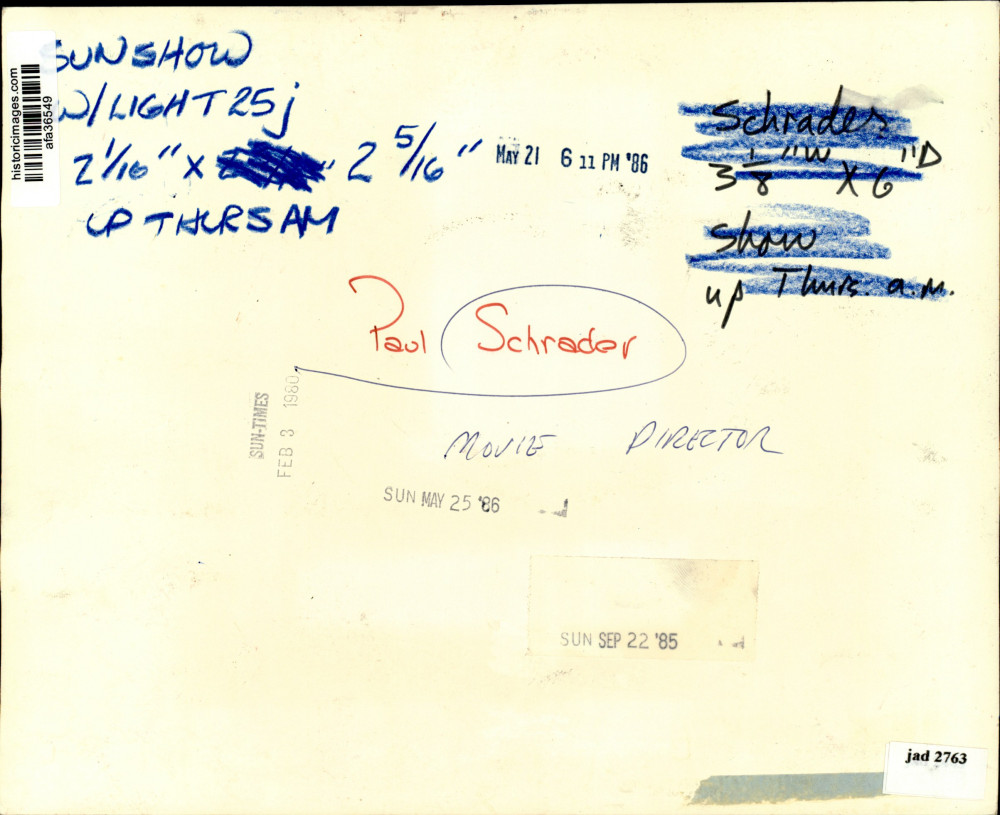 SUNSHOW
W/LIGHT 25j
2 1/16" X 2 5/16"
UP THURS AM
historicimages.com
afa36549
MAY 21 6 11 PM '86
Schrader
3 1/8 "W X 6 "D
Show
up Thurs. a.m.
Paul Schrader
SUN-TIMES
FEB 3 1980
MOVIE DIRECTOR
SUN MAY 25 '86
SUN SEP 22 '85
jad 2763